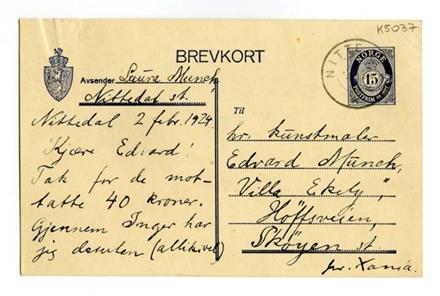 K5037
BREVKORT
Avsender Laura Munch,
Nittedal st.
Nittedal 2 febr. 1924.
Kjære Edvard!
Tak for de mot-
tatte 40 kroner.
Gjennem Inger har
jeg desuten (allikevel)
NITTE
NORGE
15
Til
hr. kunstmaler
Edvard Munch,
"Villa Ekely",
Høffsveien,
Skøyen st.
pr. Xania.